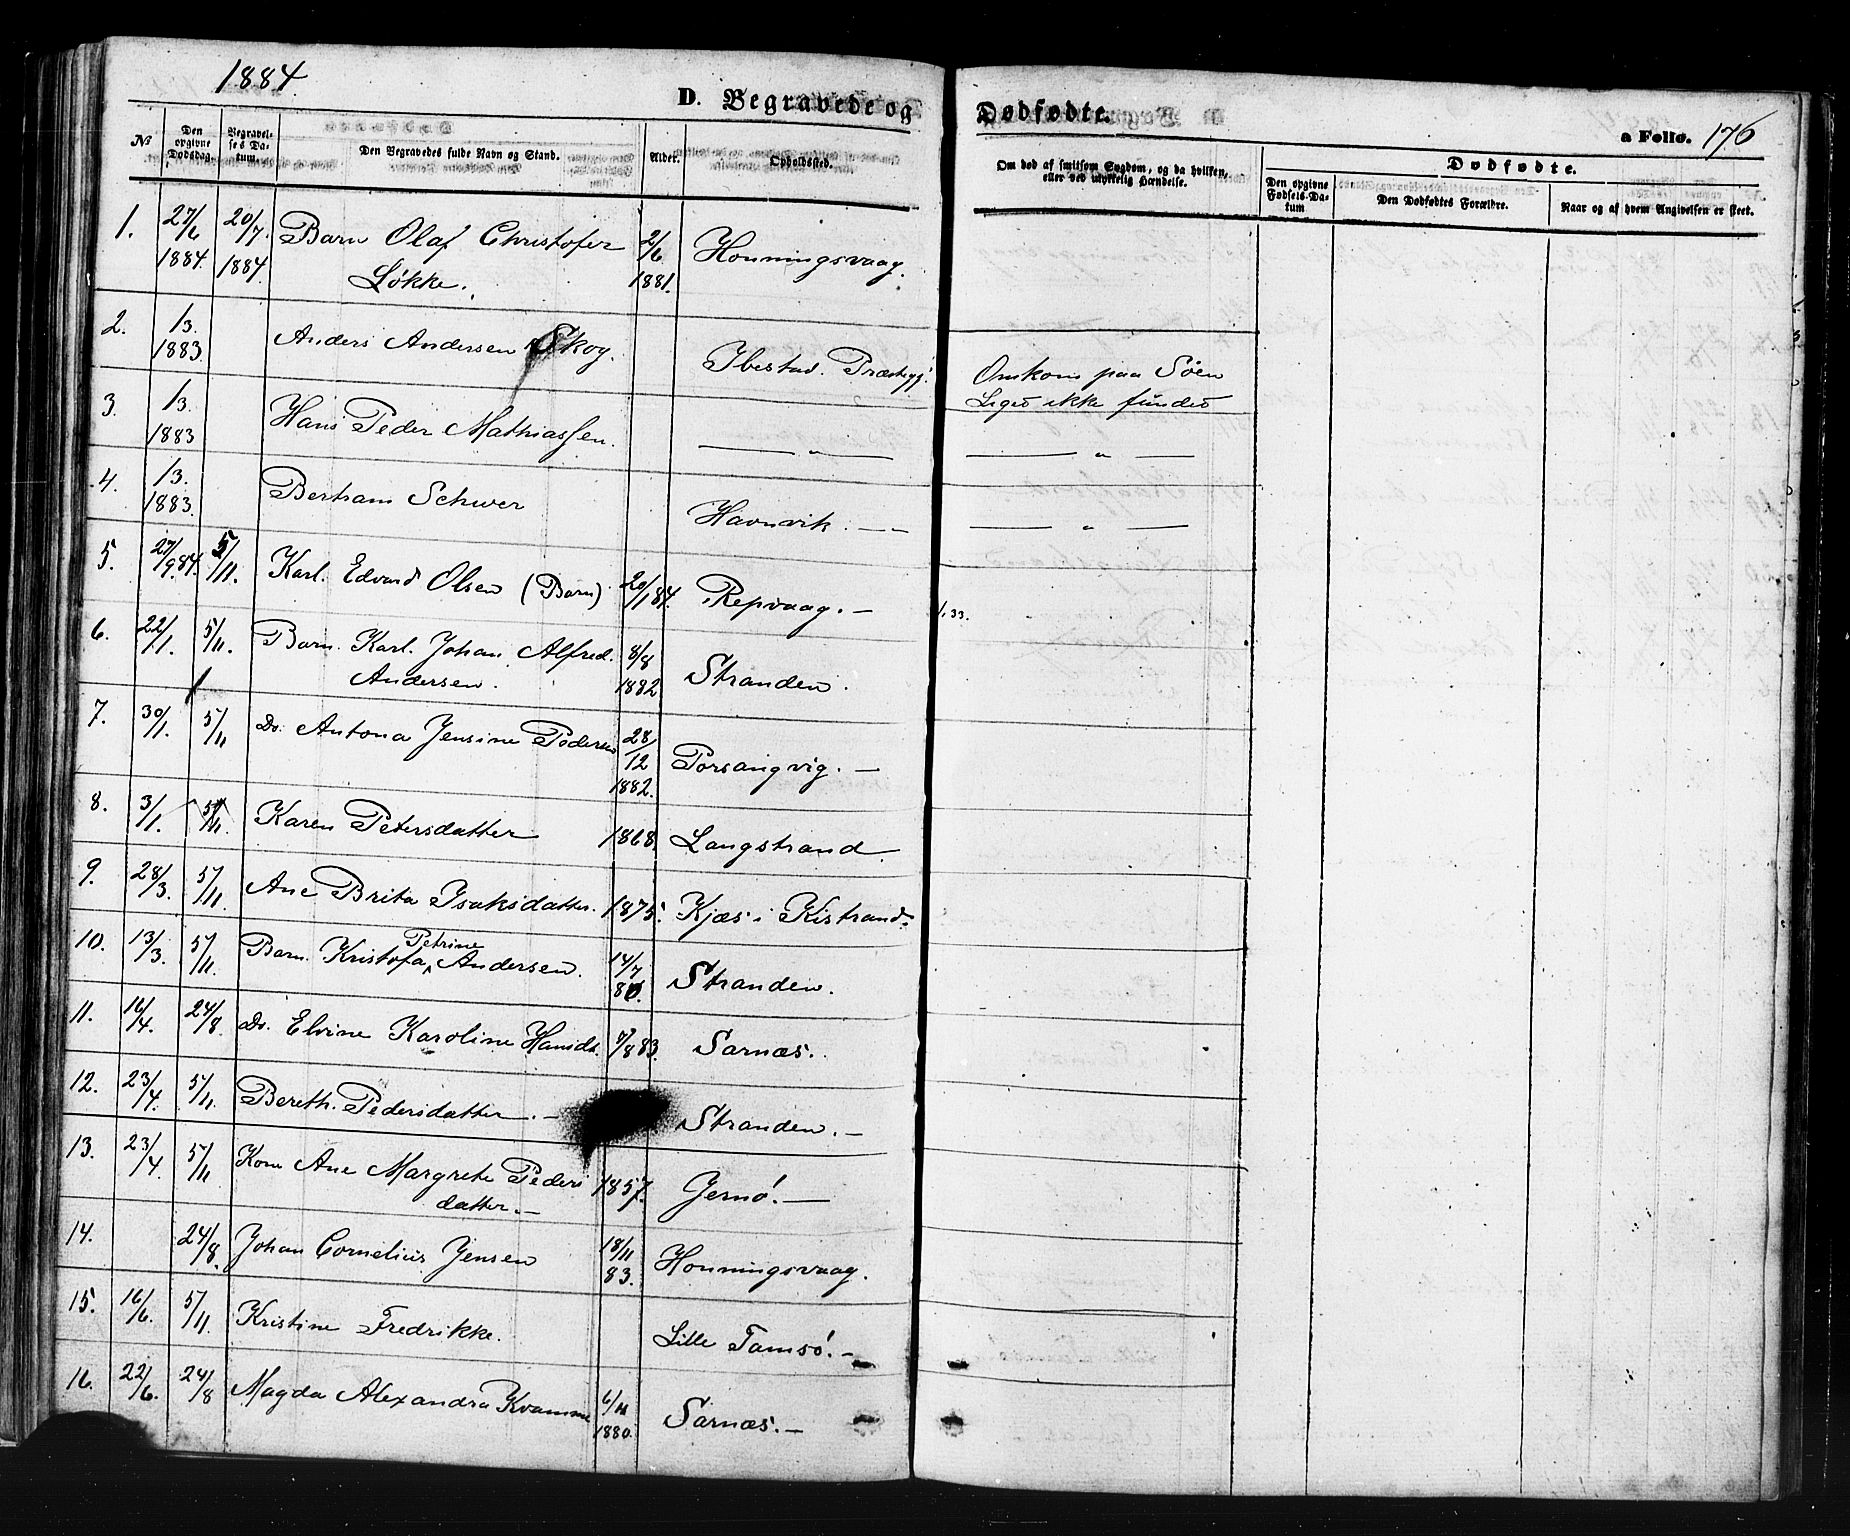 1884.
D. Begravede og Dødfødte.
a Folio. 176
№ Den opgivne Dødsdag. Begravelses Datum. Den Begravedes fulde Navn og Stand. Alder. Opholdssted. Om død af smitsom Sygdom, og da hvilken, eller ved ulykkelig Hændelse. Dødfødte.
Den opgivne Fødsels-Datum Den Dødfødtes Forældre. Naar og af hvem Angivelsen er skeet.
1. 27/6 1884. 20/7. 1884. Barn Olaf Christofer 2/6 1881. Honningsvaag.
Løkke.
2. 1/3. 1883. Anders Andersen Skog. Ibestad. Præstegj. Omkom paa Søen
Liget ikke fundet
3. 1/3. 1883 Hans Peder Mathiassen. — " — — " —
4. 1/3. 1883. Bertram Schwer Havnvik. — — " —
5. 27/9.84. 5/11. Karl. Edvard Olsen (Barn) 20/1 84. Repvaag. — 1.33.
6. 22/1. 5/11. Barn. Karl. Johan Alfred. 8/8 1882 Stranden.
Andersen.
7. 30/1. 5/11 Do. Antona Jensine Pedersen 28/12 1882. Porsangvig. —
8. 3/1. 5/11. Karen Petersdatter 1868. Langstrand.
9. 28/3. 5/11. Ane Brita Isaksdatter. 1875. Kjæs i Kistrand.
10. 13/3. 5/11. Barn. Kristofa Petrine Andersen. 14/7 80. Stranden.
11. 16/4. 24/8. Do. Elvine Karoline Hansdt. 7/8 83. Sarnæs.
12. 23/4. 5/11. Bereth. Pedersdatter. — Stranden. —
13. 23/4. 5/11 Kone Ane Margrete Peders 1857. Gjesvær. —
datter. —
14. 24/8. Johan Cornelius Jensen 18/11 83. Honningsvaag.
15. 16/6. 5/11. Kristine Fredrikke. Lille Tamsø. —
16. 22/6. 24/8 Magda Alexandra Kvamme 6/11 1880. Sarnæs. —